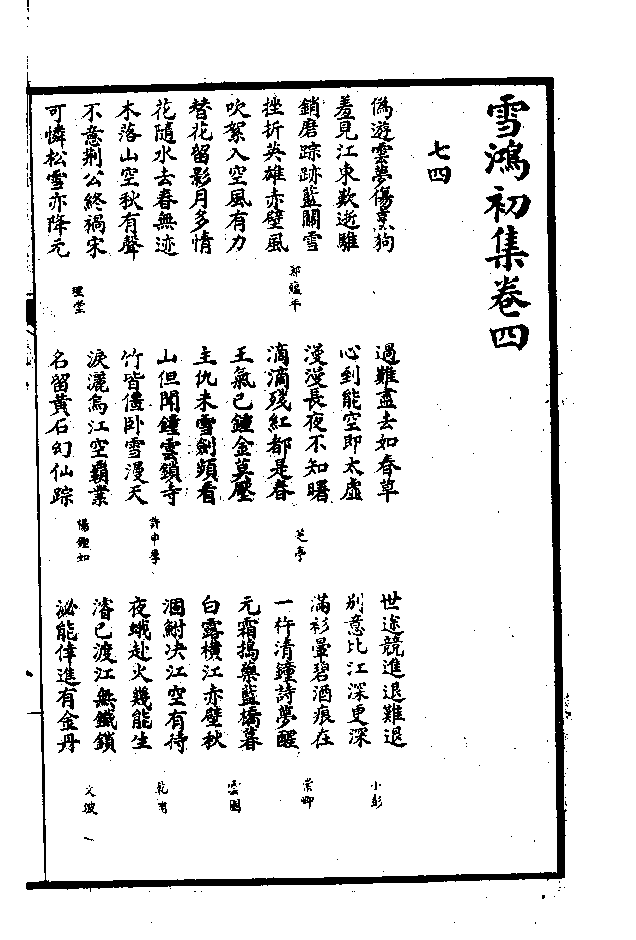 雪鴻初集卷四
七四
偽遊雲夢傷烹狗
羞見江東歎逝騅
銷磨踪跡藍關雪
挫折英雄赤壁風
吹絮入空風有力
替花留影月多情
花隨水去春無迹
木落山空秋有聲
不意荊公終禍宋
可憐松雪亦降元
鄭蘊平
理堂
過難盡去如春草
心到能空即太虛
漫漫長夜不知曙
滴滴殘紅都是春
王氣已鍾金莫壓
主仇未雪劍頻看
山但聞鐘雲鎖寺
竹皆僵臥雪漫天
淚灑烏江空霸業
名留黃石幻仙踪
芝亭
許中孚
楊鯉如
世途競進退難退
別意比江深更深
滿衫暈碧酒痕在
一杵清鐘詩夢醒
元霜搗藥藍橋暮
白露橫江赤壁秋
涸鮒決江空有待
夜蛾赴火幾能生
濬已渡江無鐵鎖
泌能倖進有金丹
小彭
崇卿
雲圖
乾甫
文坡